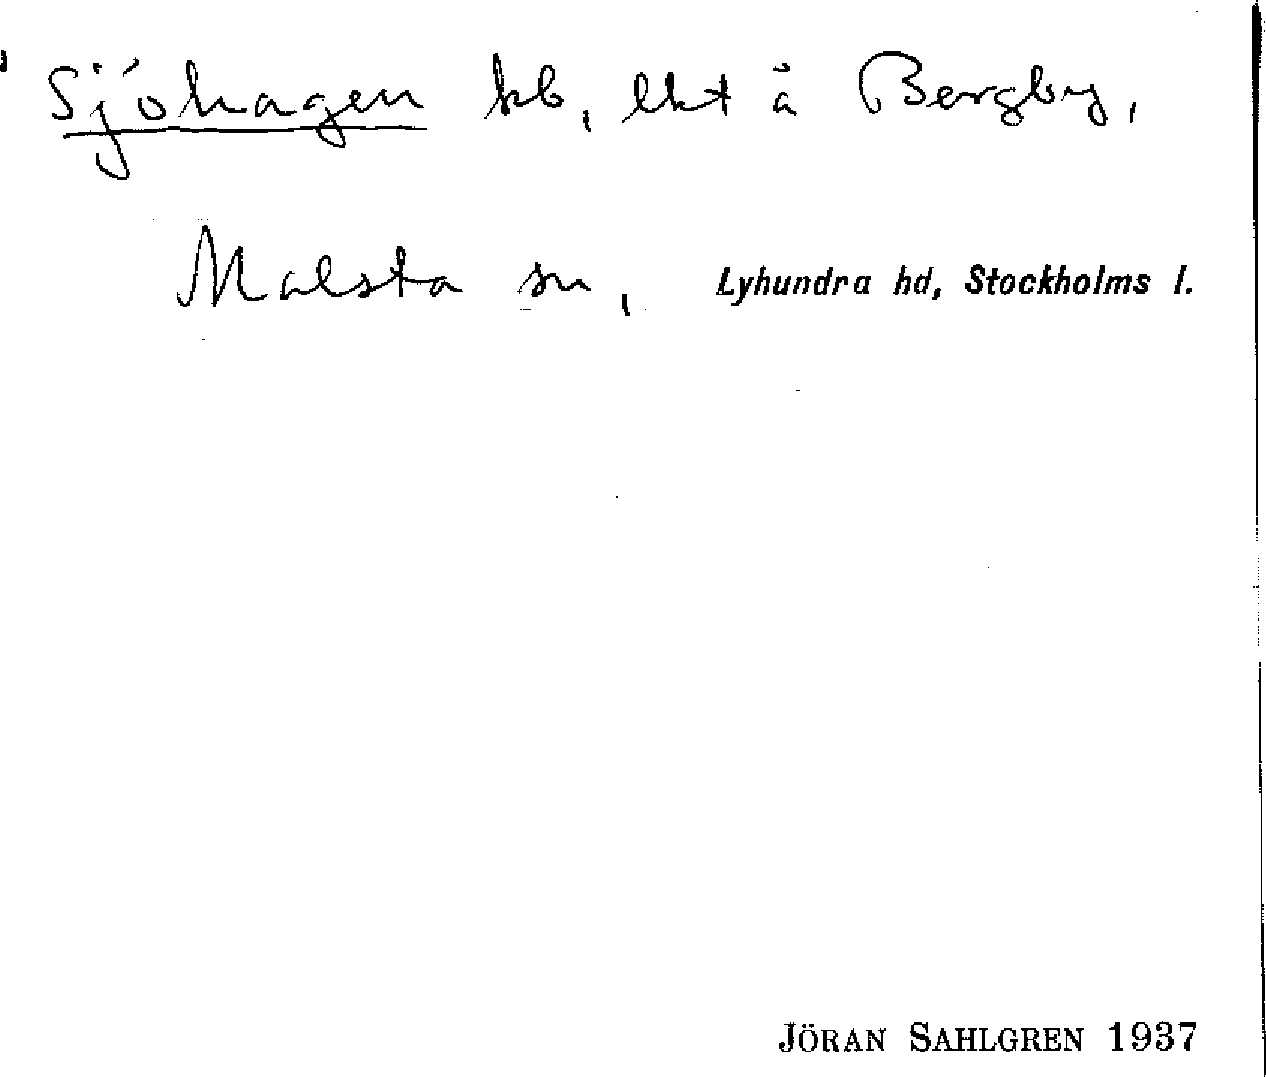 Sjöhagen hb, lht å Bergby,
Malsta sn, Lyhundra hd, Stockholms l.
JÖRAN SAHLGREN 1937